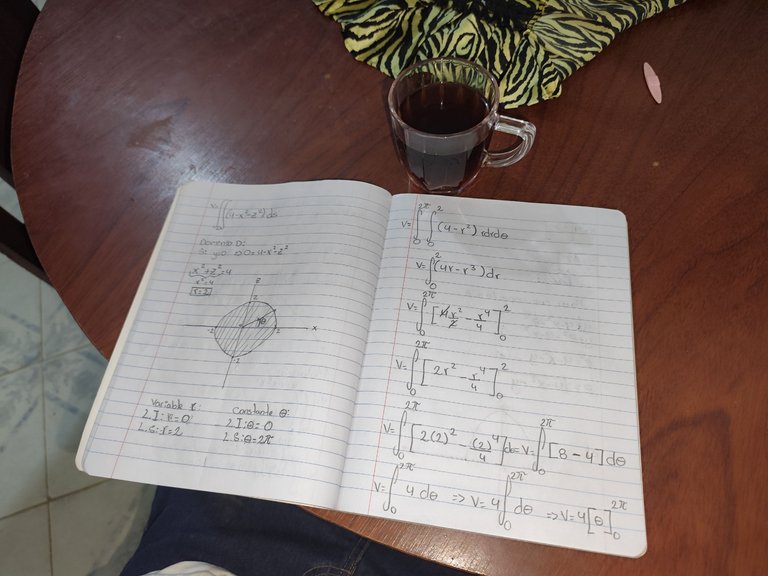 V=∬(4-x²-z²)ds
D
Dominio D:
Si y=0 ⇒0=4-x²-z²
x²+z²=4
r²=4
r=2
z
2
θ
-2 2 x
-2
Variable r: Constante θ:
L.I: r=0 L.I:θ=0
L.S: r=2 L.S:θ=2π
V=∫₀^2π ∫₀^2 (4-r²) rdrdθ
V=∫₀^2 (4r-r³)dr
V=∫₀^2π [4r²/2 - r⁴/4]₀^2
V=∫₀^2π [2r² - r⁴/4]₀^2
V=∫₀^2π [2(2)² - (2)⁴/4]dθ=V=∫₀^2π [8-4]dθ
V=∫₀^2π 4 dθ => V=4∫₀^2π dθ => V=4[θ]₀^2π